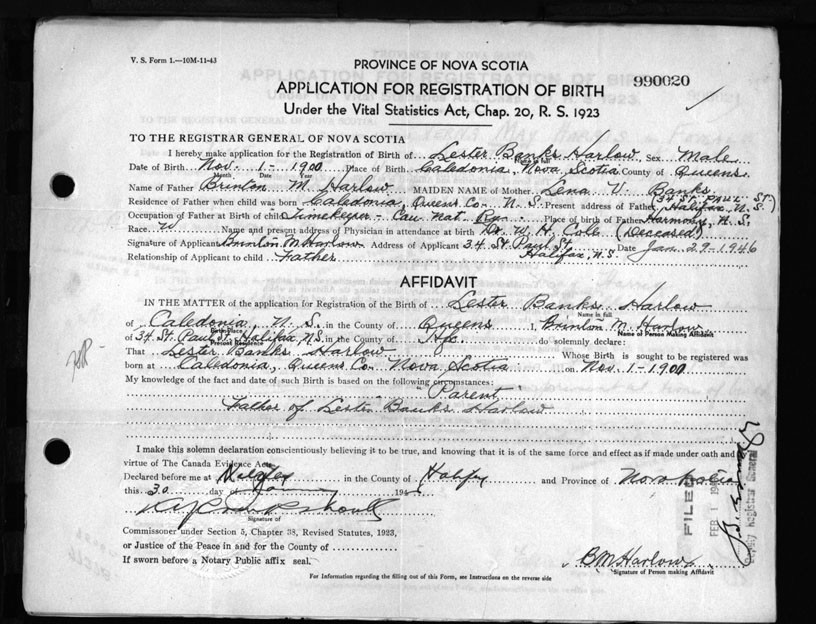 V. S. Form 1.—10M-11-43
PROVINCE OF NOVA SCOTIA
990020
APPLICATION FOR REGISTRATION OF BIRTH
Under the Vital Statistics Act, Chap. 20, R. S. 1923
TO THE REGISTRAR GENERAL OF NOVA SCOTIA
I hereby make application for the Registration of Birth of Lester Banks Harlow, Sex Male
Name in full
Date of Birth Nov. 1 - 1900 Place of Birth Caledonia, Nova Scotia County of Queens
Month Date Year
34 St. Paul St.
Name of Father Brinton M. Harlow MAIDEN NAME of Mother Lena V. Banks
Residence of Father when child was born Caledonia, Queens Co. N. S. Present address of Father Halifax N. S.
Occupation of Father at Birth of child Timekeeper - Can. Nat. Ry. Place of birth of Father Harmony, N. S.
Race W Name and present address of Physician in attendance at birth Dr. W. H. Cole (Deceased)
Signature of Applicant Brinton M Harlow Address of Applicant 34 St. Paul St. Date Jan 29-1946
Relationship of Applicant to child Father Halifax, N.S.
AFFIDAVIT
IN THE MATTER of the application for Registration of the Birth of Lester Banks Harlow
Name in full
of Caledonia, N. S. in the County of Queens I, Brinton M. Harlow
Birth Place Name of Person Making Affidavit
of 34 St. Paul St. Halifax N.S. in the County of Hfx. do solemnly declare:
Present Residence
That Lester Banks Harlow Whose Birth is sought to be registered was
born at Caledonia, Queens Co. Nova Scotia on Nov. 1 - 1900
My knowledge of the fact and date of such Birth is based on the following circumstances:
Parent
Father of Lester Banks Harlow
I make this solemn declaration conscientiously believing it to be true, and knowing that it is of the same force and effect as if made under oath and
virtue of The Canada Evidence Act.
Declared before me at Halifax in the County of Halifax and Province of Nova Scotia
this 30 day of 194
Signature of
Commissioner under Section 5, Chapter 38, Revised Statutes, 1923,
or Justice of the Peace in and for the County of
If sworn before a Notary Public affix seal.
BM Harlow
Signature of Person making Affidavit
For Information regarding the filling out of this Form, see Instructions on the reverse side
FILED
FEB 1 194
Deputy Registrar General